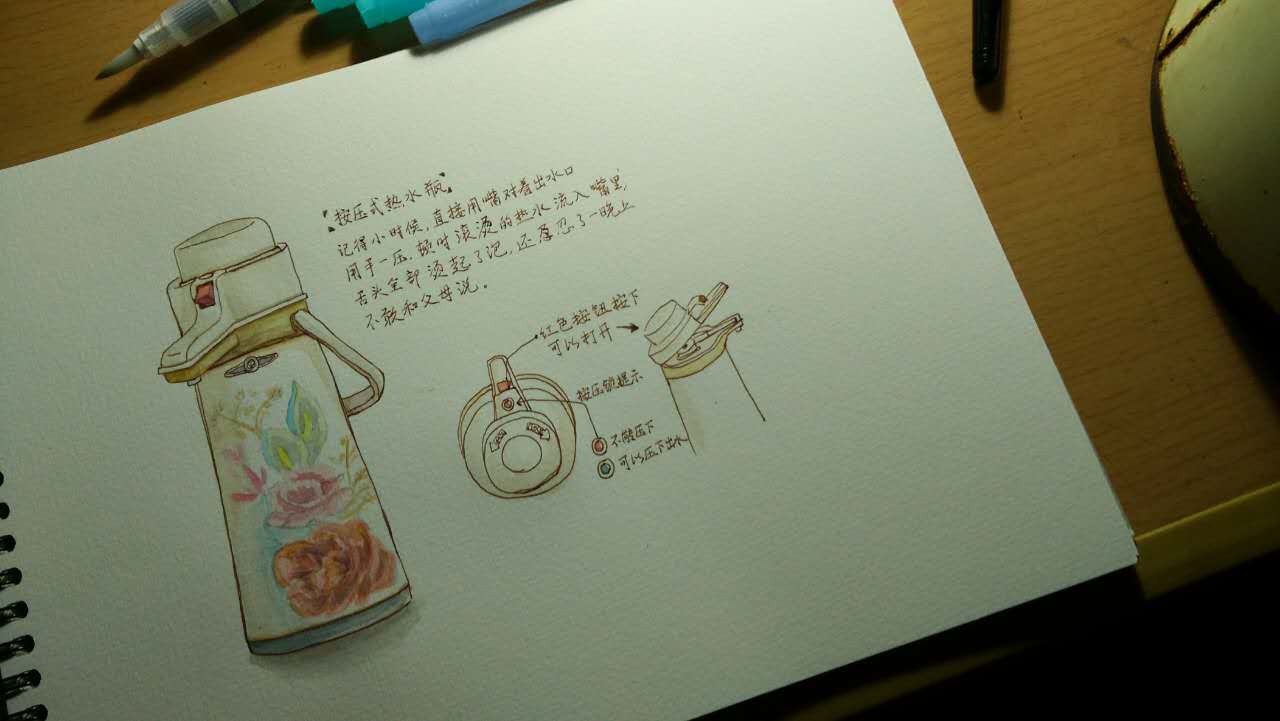 "按压式热水瓶"
记得小时候,直接用嘴对着出水口
用手一压,顿时滚烫的热水流入嘴里,
舌头全部烫起了泡,还愿忍了一晚上
不敢和父母说。
红色按钮按下
可以打开
按压锁提示
不能压下
可以压下出水